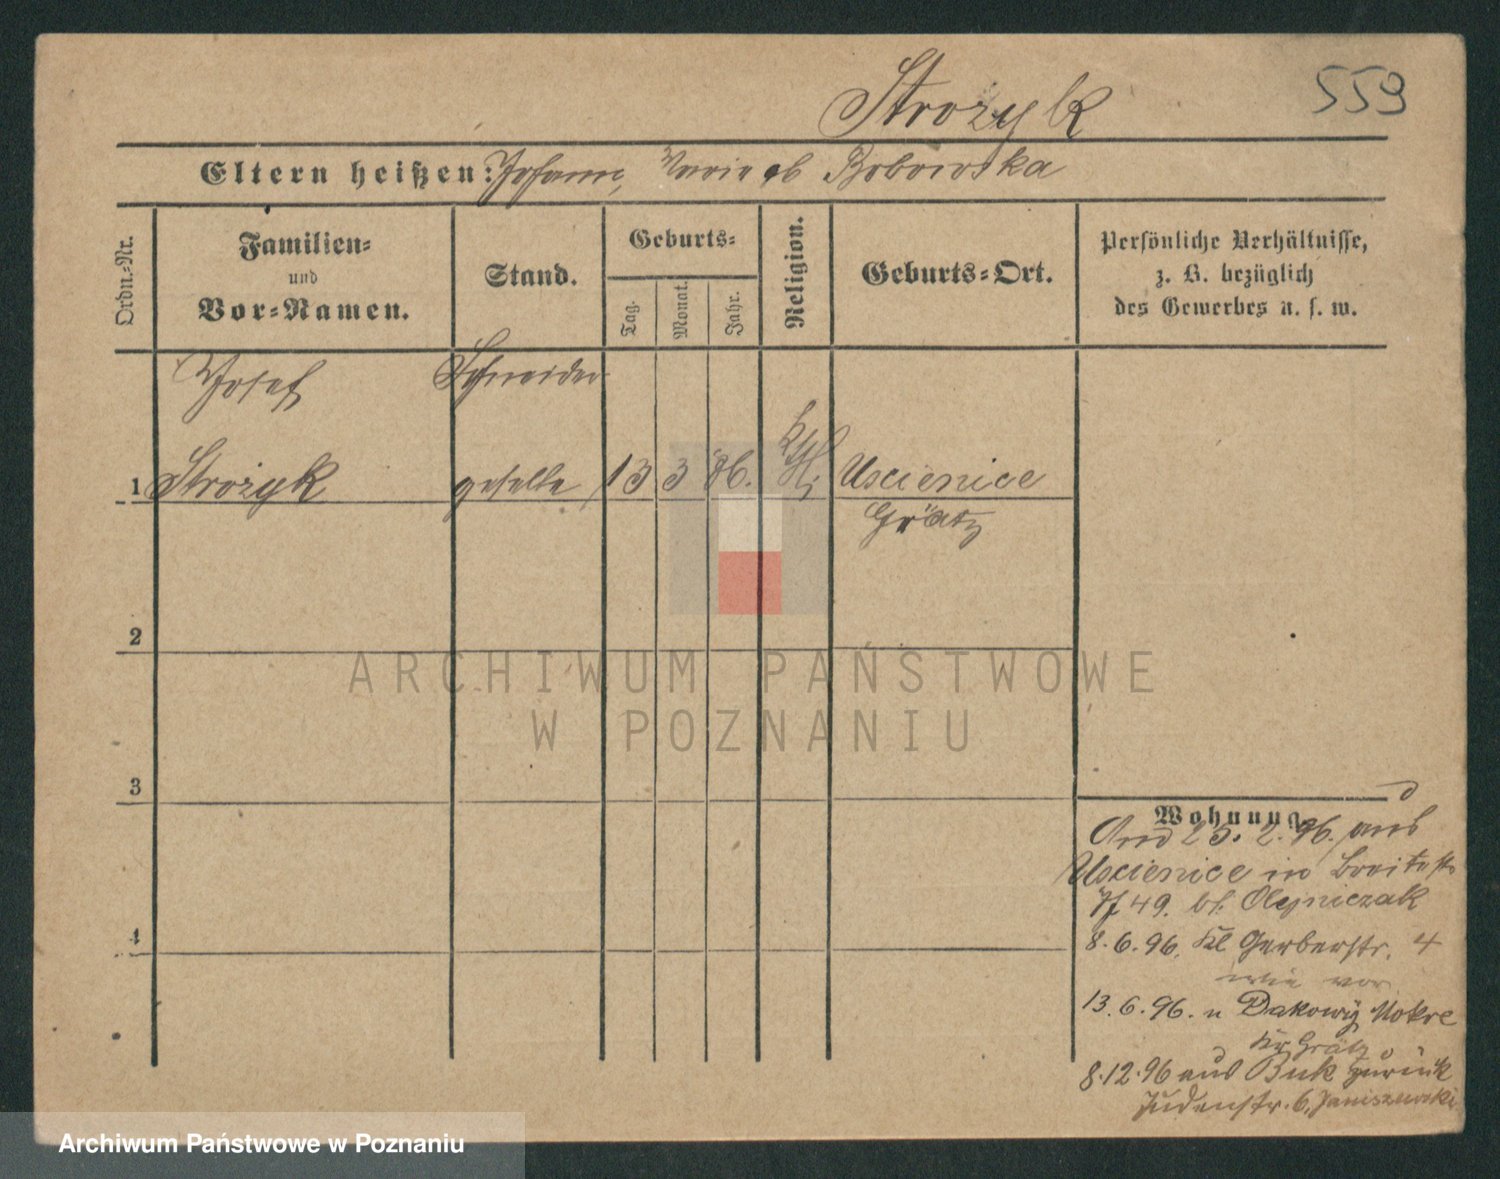 Strozyk
559
Eltern heißen: Johann, Maria geb Bobowska
Ordn.=Nr.
Familien=
und
Vor=Namen.
Stand.
Geburts=
Tag.
Monat.
Jahr.
Religion.
Geburts=Ort.
Persönliche Verhältnisse,
z. B. bezüglich
des Gewerbes u. s. w.
Josef
Schneider
1 Strozyk
geselle
13 3 86.
kth.
Uscienice
Grätz
2
3
4
Wohnung
25. 2. 96. aus
Uscienice in Breitestr
49. bf. Olejniczak
8. 6. 96. Kl Gerberstr. 4
wie vor
13. 6. 96. n Dakowÿ Mokre
Kr Grätz
8. 12. 96 aus Buk zurück
Judenstr. 6, Janiszewski
ARCHIWUM PAŃSTWOWE
W POZNANIU
Archiwum Państwowe w Poznaniu